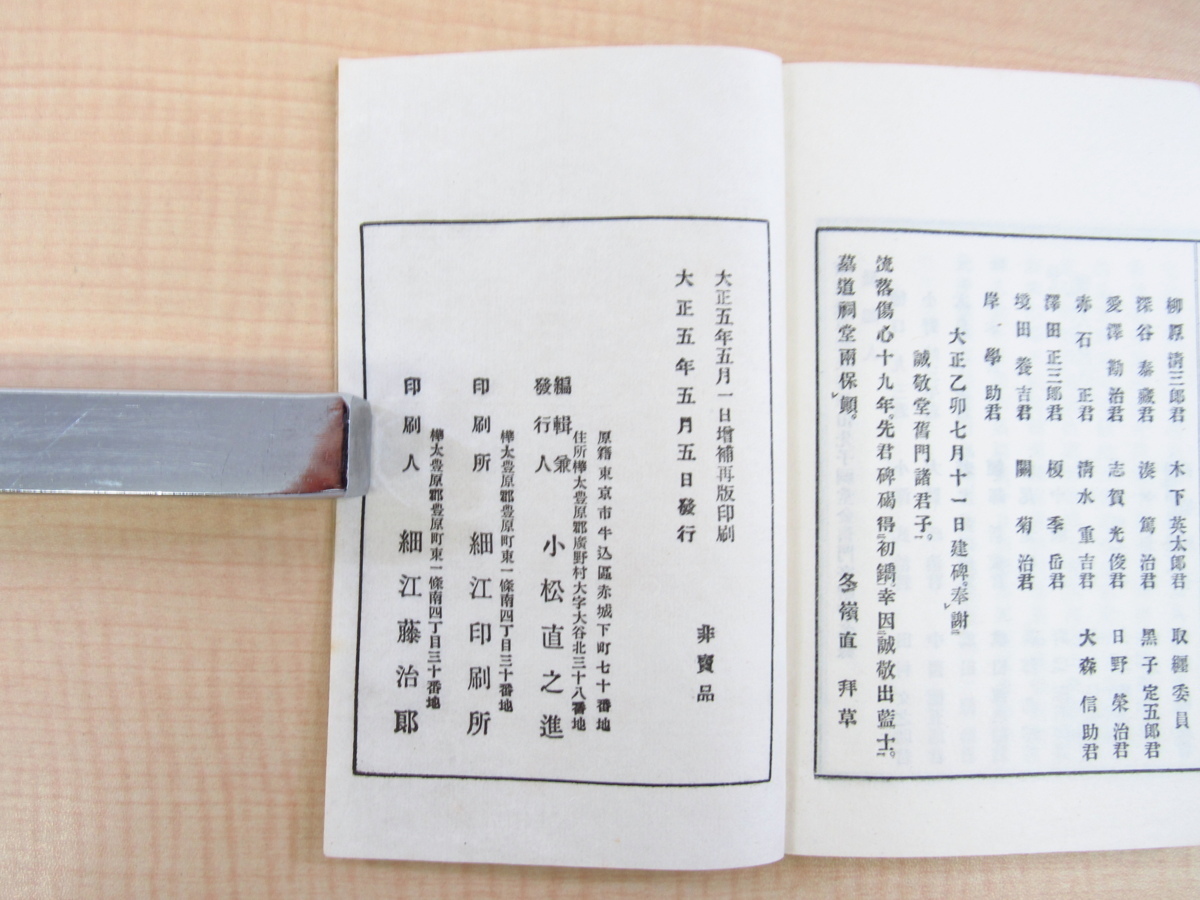 柳原淸三郎君　木下英太郎君　取經委員
深谷泰藏君　湊篤治君　黑子定五郎君
愛澤勸治君　志賀光俊君　日野榮治君
赤石正君　淸水重吉君　大森信助君
澤田正三郎君　榎季岳君
境田養吉君　關菊治君
岸一學助君
大正乙卯七月十一日建碑。奉謝
誠敬堂舊門諸君子。
流落傷心十九年。先君碑碣得初鐫。幸因誠敬出藍士。
墓道祠堂兩保顚。　冬嶺直　拜草
大正五年五月一日增補再版印刷
大正五年五月五日發行
非賣品
原籍東京市牛込區赤城下町七十番地
住所樺太豊原郡廣野村大字大谷北三十八番地
編輯兼發行人　小松直之進
樺太豊原郡豊原町東一條南四丁目三十番地
印刷所　細江印刷所
樺太豊原郡豊原町東一條南四丁目三十番地
印刷人　細江藤治郎